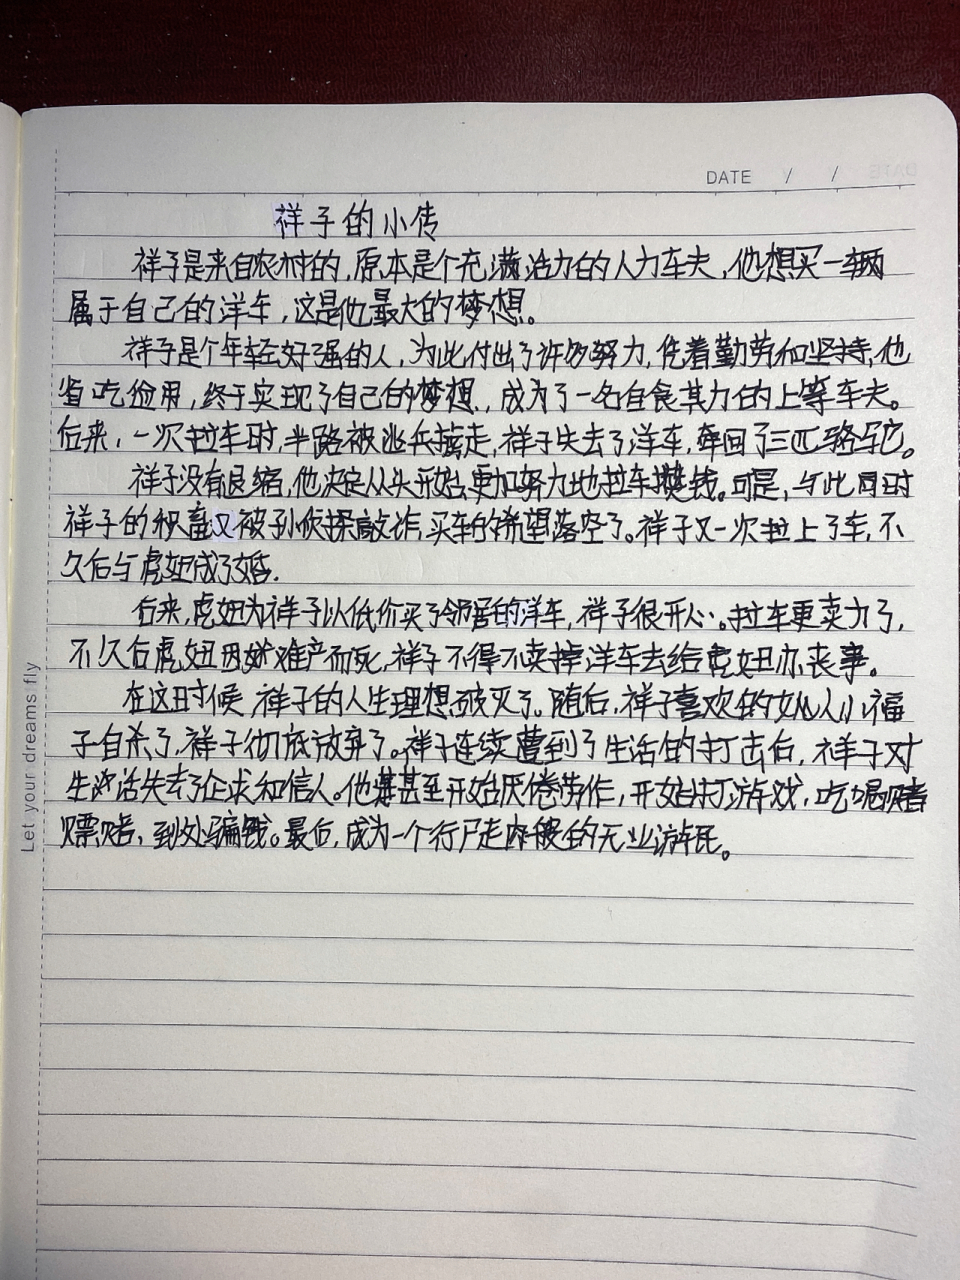 DATE / /
祥子的小传
祥子是来自农村的,原本是个充满活力的人力车夫,他想买一辆
属于自己的洋车,这是他最大的梦想。
祥子是个年轻好强的人,为此付出了许多努力,凭着勤劳和坚持,他
省吃俭用,终于实现了自己的梦想,成为了一名自食其力的上等车夫。
后来,一次拉车时,半路被逃兵掳走,祥子失去了洋车,牵回了三匹骆驼。
祥子没有退缩,他决定从头开始,更加努力地拉车攒钱。可是,与此同时
祥子的积蓄又被孙侦探敲诈,买车的希望落空了。祥子又一次拉上了车,不
久后与虎妞成了婚.
后来,虎妞为祥子以低价买了邻居的洋车,祥子很开心。拉车更卖力了,
不久后虎妞因难产而死,祥子不得不卖掉洋车去给虎妞办丧事。
在这时候,祥子的人生理想破灭了。随后,祥子喜欢的女人小福
子自杀了,祥子彻底放弃了。祥子连续遭到了生活的打击后,祥子对
生活失去了企求和信人。他甚至开始厌倦劳作,开始打游戏,吃喝
嫖赌,到处骗钱。最后,成为一个行尸走肉般的无业游民。
Let your dreams fly